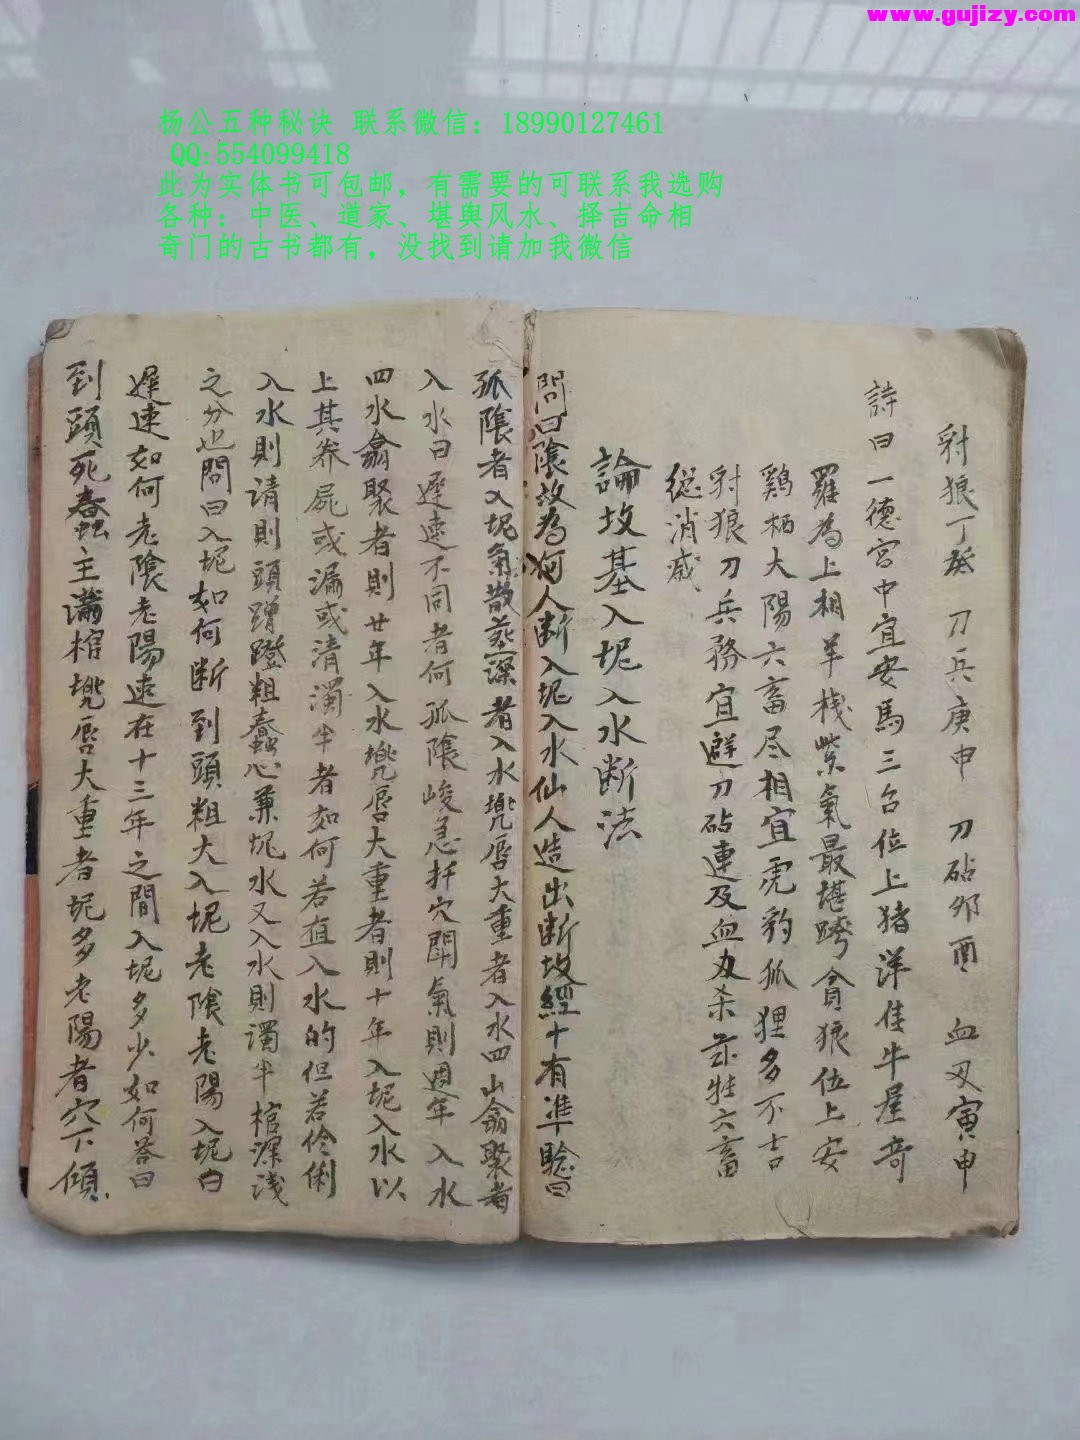 www.gujizy.com
杨公五种秘诀 联系微信：18990127461
QQ:554099418
此为实体书可包邮，有需要的可联系我选购
各种：中医、道家、堪舆风水、择吉命相
奇门的古书都有，没找到请加我微信
射狼丁癸 刀兵庚申 刀砧卯酉 血刃寅申
詩曰一德宮中宜安馬三台位上猪洋佳牛屋奇
羅為上相羊棧紫氣最堪誇貪狼位上安
鷄栖大陽六畜尽相宜虎豹狐狸多不吉
射狼刀兵務宜避刀砧連及血刃杀 牲六畜
從消
論坟基入坭入水断法
問曰陰故為何人断入坭入水仙人造出断坟經十有準驗曰
孤陰者入坭氣散 深者入水兠唇大重者入水四山翕聚者
入水曰遲速不同者何孤陰峻急扦穴開氣則週年入水
四水翕聚者則廿年入水兠唇大重者則十年入坭入水以
上其养屍或漏或清濁半者如何若直入水的但若伶俐
入水則请則頭蹭蹬粗蠢心兼坭水又入水則濁半棺深浅
之分也問曰入坭如何断到頭粗大入坭老陰老陽入坭曰
遲速如何老陰老陽速在十三年之間入坭多少如何答曰
到頭死蠢主满棺兠唇大重者坭多老陽者穴下傾